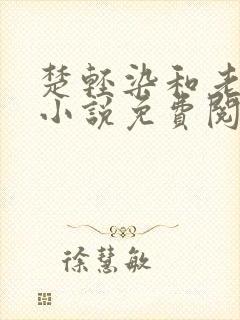 楚輕染和老
小說免費閱
徐慧敏